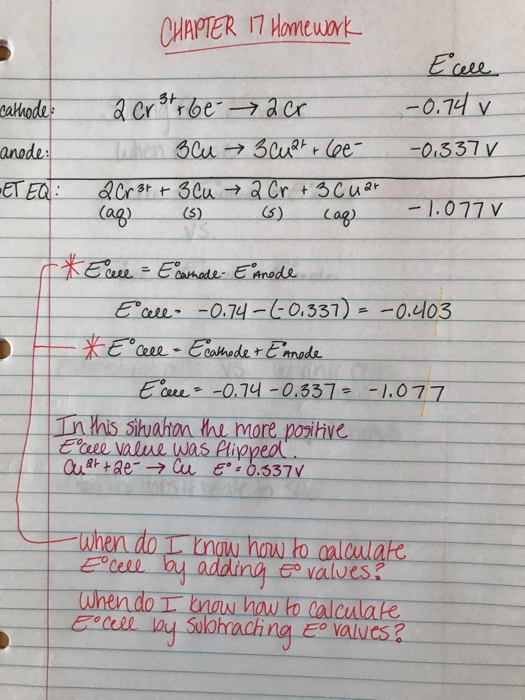 CHAPTER 17 Homework
E°cell
cathode: 2 Cr³⁺ + 6e⁻ → 2 Cr -0.74 V
anode: 3Cu → 3Cu²⁺ + 6e⁻ -0.337 V
ET EQ: 2Cr³⁺ + 3Cu → 2 Cr + 3Cu²⁺
(aq) (s) (s) (aq) -1.077 V
* E°cell = E°cathode - E°Anode
E°cell = -0.74 - (-0.337) = -0.403
* E°cell = E°cathode + E°Anode
E°cell = -0.74 - 0.337 = -1.077
In this situation the more positive
E°cell value was flipped.
Cu²⁺ + 2e⁻ → Cu E° = 0.337V
when do I know how to calculate
E°cell by adding E° values?
When do I know how to calculate
E°cell by subtracting E° values?